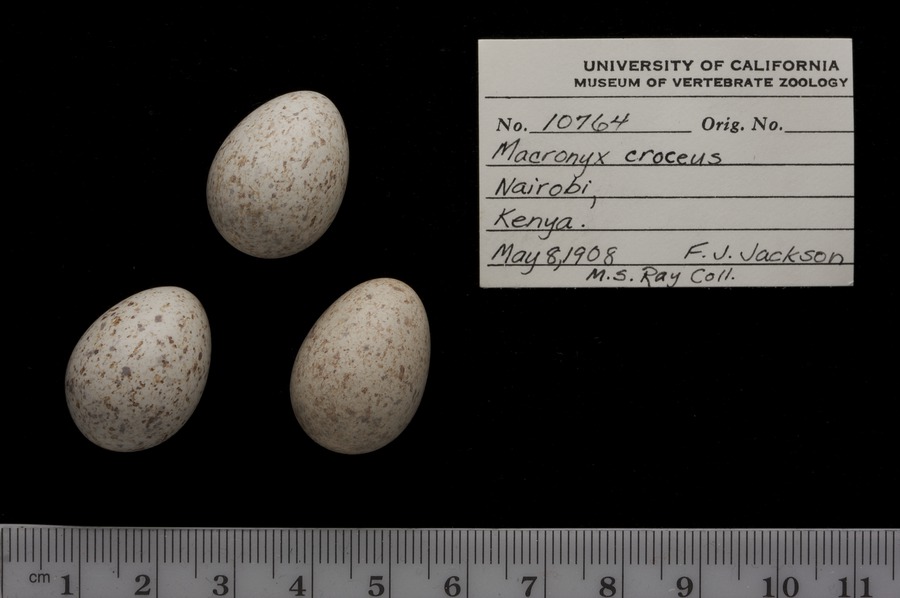 UNIVERSITY OF CALIFORNIA
MUSEUM OF VERTEBRATE ZOOLOGY
No. 10764 Orig. No.
Macronyx croceus
Nairobi,
Kenya.
May 8, 1908 F. J. Jackson
M.S. Ray Coll.
cm 1 2 3 4 5 6 7 8 9 10 11